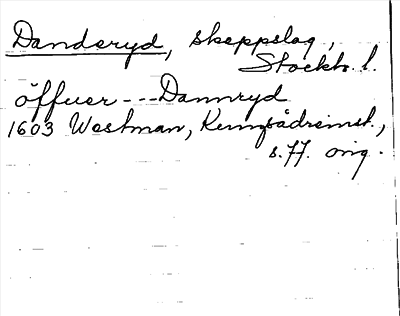 Danderyd, skeppslag,
Stockh. l.
öffuer --- Dannryd
1603 Westman, Kempådremst.,
s. 77. orig.